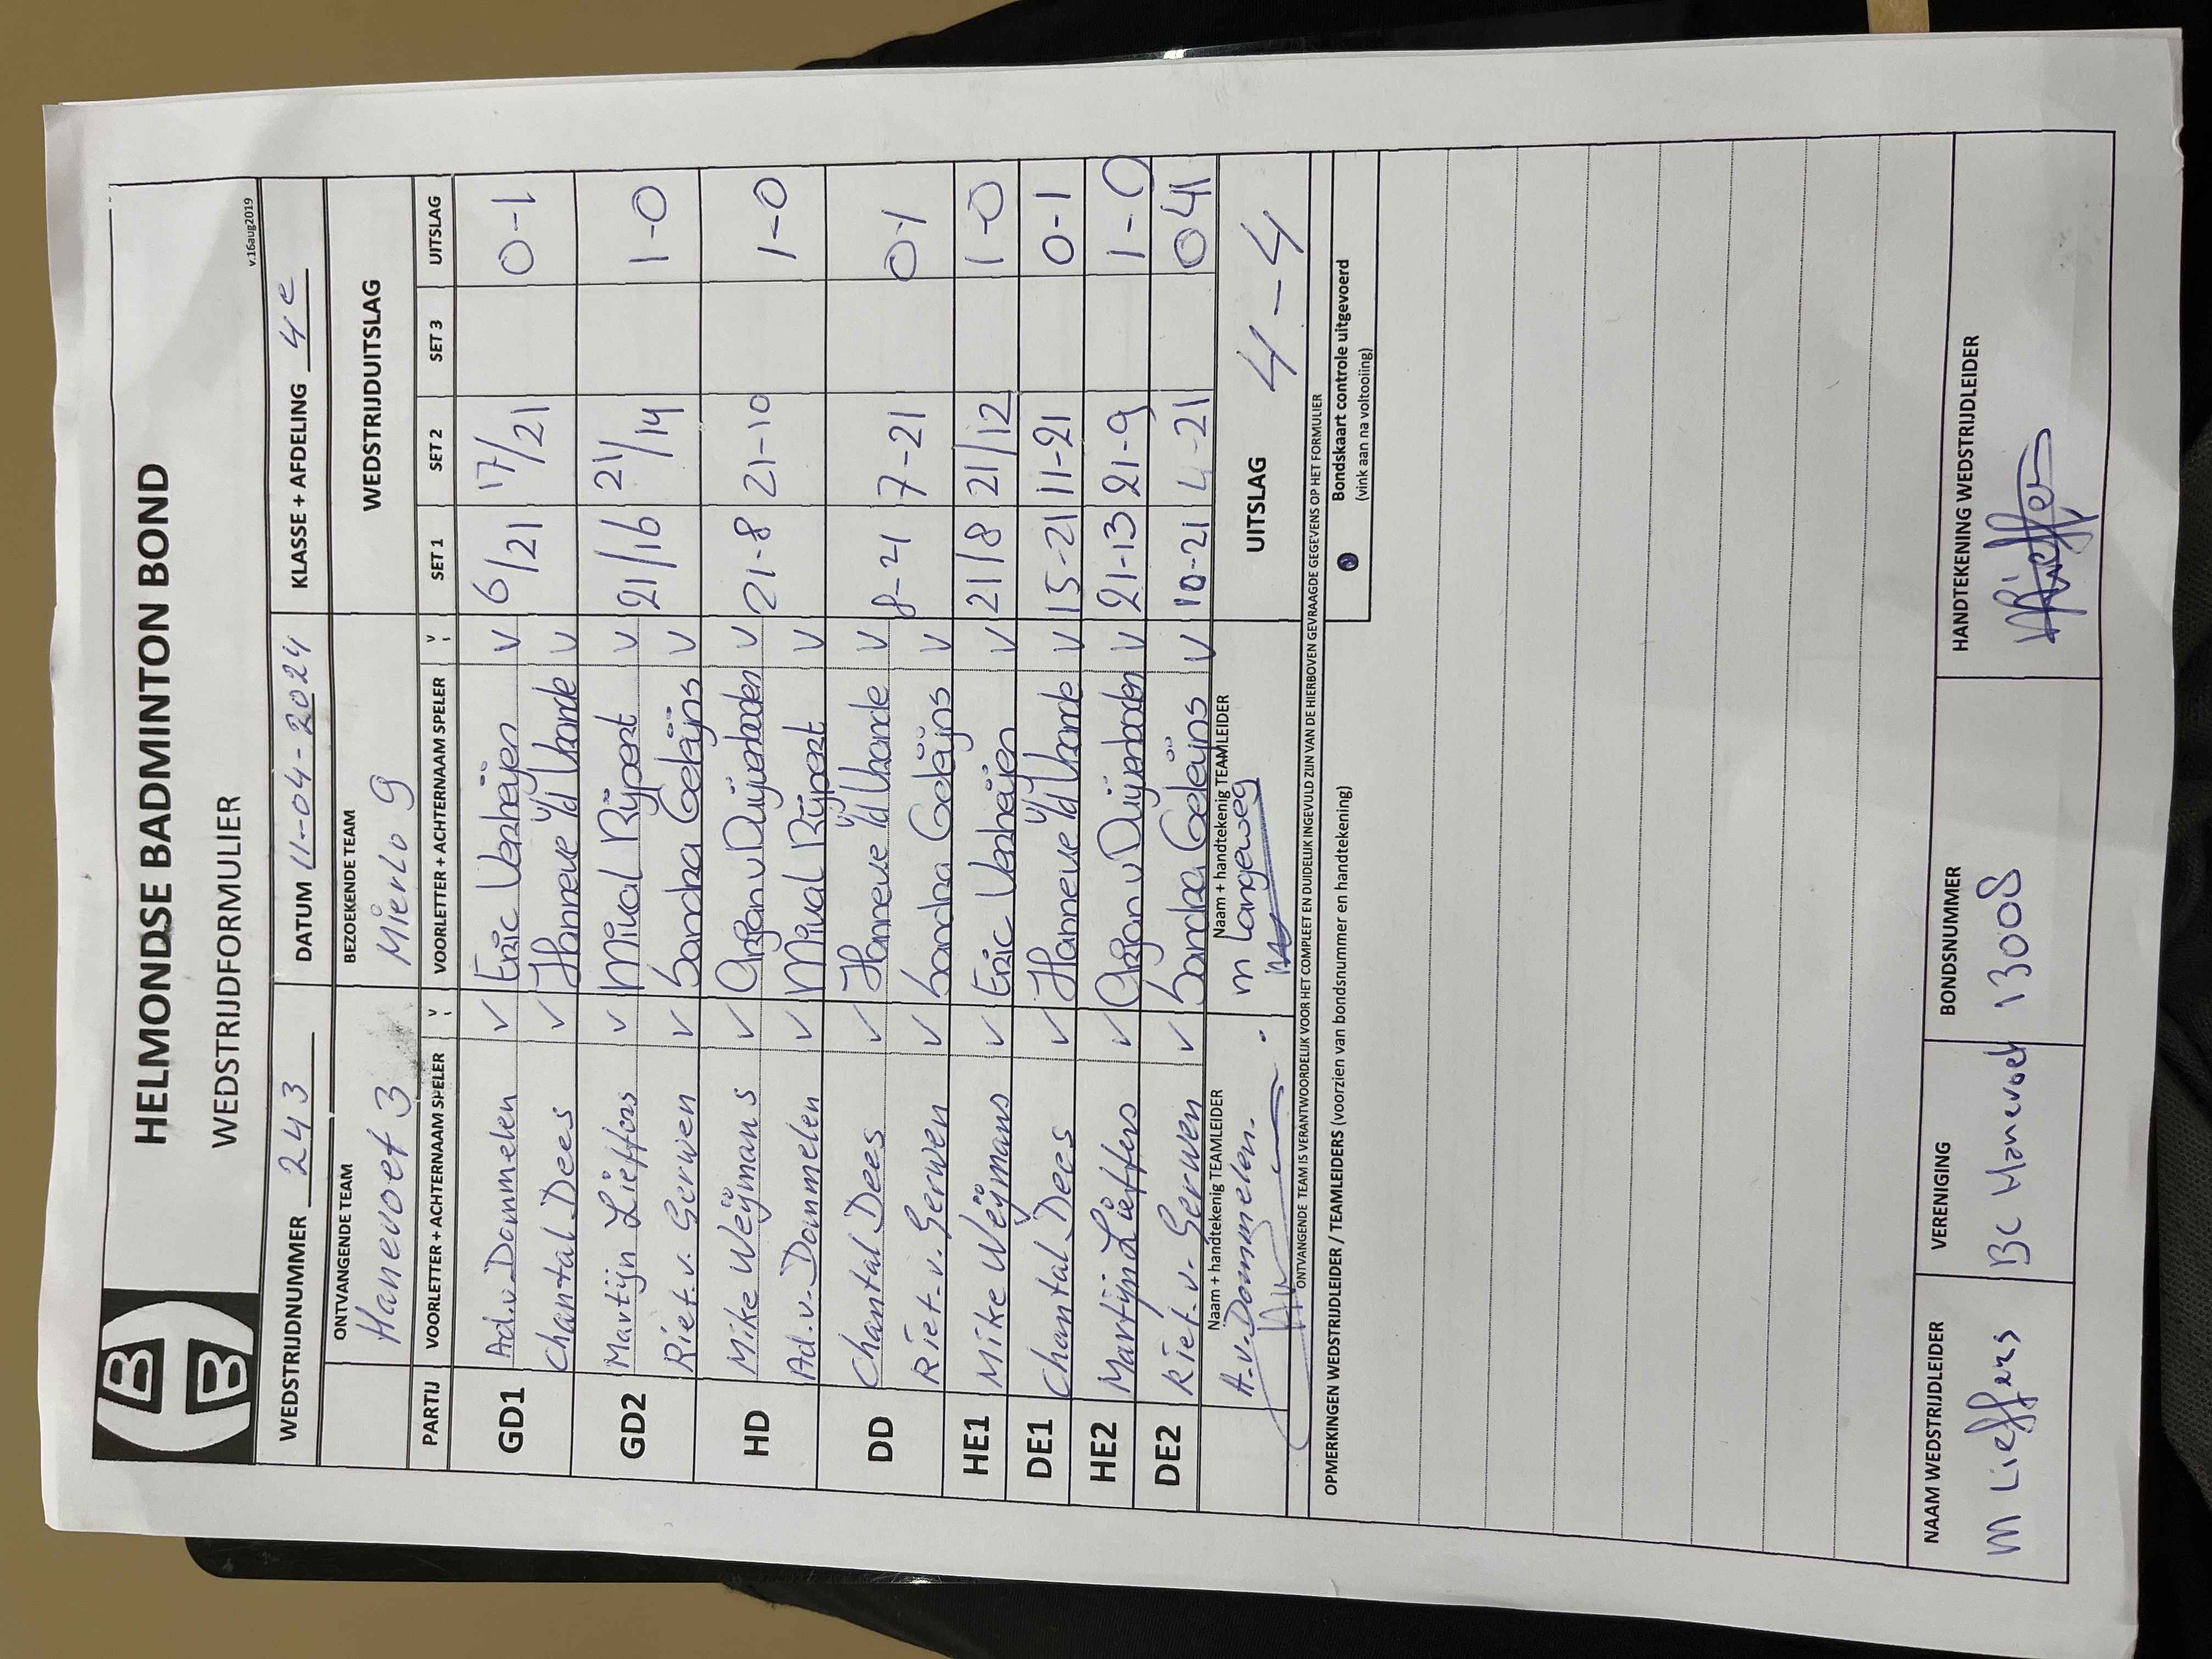 HELMONDSE BADMINTON BOND
WEDSTRIJDFORMULIER
v.16aug2019
WEDSTRIJDNUMMER 243 DATUM 11-04-2024 KLASSE + AFDELING 4e
ONTVANGENDE TEAM BEZOEKENDE TEAM WEDSTRIJDUITSLAG
Hanevoet 3 Mierlo 9
PARTIJ VOORLETTER + ACHTERNAAM SPELER v VOORLETTER + ACHTERNAAM SPELER v SET 1 SET 2 SET 3 UITSLAG
GD1 Ad.v.Dommelen v Eric Verheijen v 6/21 17/21 0-1
Chantal Dees v Hanneke v/d Vorde v
GD2 Martijn Lieffers v Mival Rijpert v 21/16 21/14 1-0
Riet.v. Gerwen v Sandra Geleijns v
HD Mike Weijmans v Arjan v Duijenboden v 21-8 21-10 1-0
Ad.v.Dommelen v Mival Rijpert v
DD Chantal Dees v Hanneke v/d Vorde v 8-21 7-21 0-1
Riet.v. Gerwen v Sandra Geleijns v
HE1 Mike Weijmans v Eric Verheijen v 21/8 21/12 1-0
DE1 Chantal Dees v Hanneke v/d Vorde v 15-21 11-21 0-1
HE2 Martijn Lieffers v Arjan v Duijenboden v 21-13 21-9 1-0
DE2 Riet.v. Gerwen v Sandra Geleijns v 10-21 4-21
Naam + handtekenig TEAMLEIDER Naam + handtekenig TEAMLEIDER UITSLAG 4-4
A.v.Dommelen m Langeweg
ONTVANGENDE TEAM IS VERANTWOORDELIJK VOOR HET COMPLEET EN DUIDELIJK INGEVULD ZIJN VAN DE HIERBOVEN GEVRAAGDE GEGEVENS OP HET FORMULIER
OPMERKINGEN WEDSTRIJDLEIDER / TEAMLEIDERS (voorzien van bondsnummer en handtekening)
Bondskaart controle uitgevoerd
(vink aan na voltooiing)
NAAM WEDSTRIJDLEIDER VERENIGING BONDSNUMMER HANDTEKENING WEDSTRIJDLEIDER
M Lieffers BC Hanevoet 13008 Lieffers